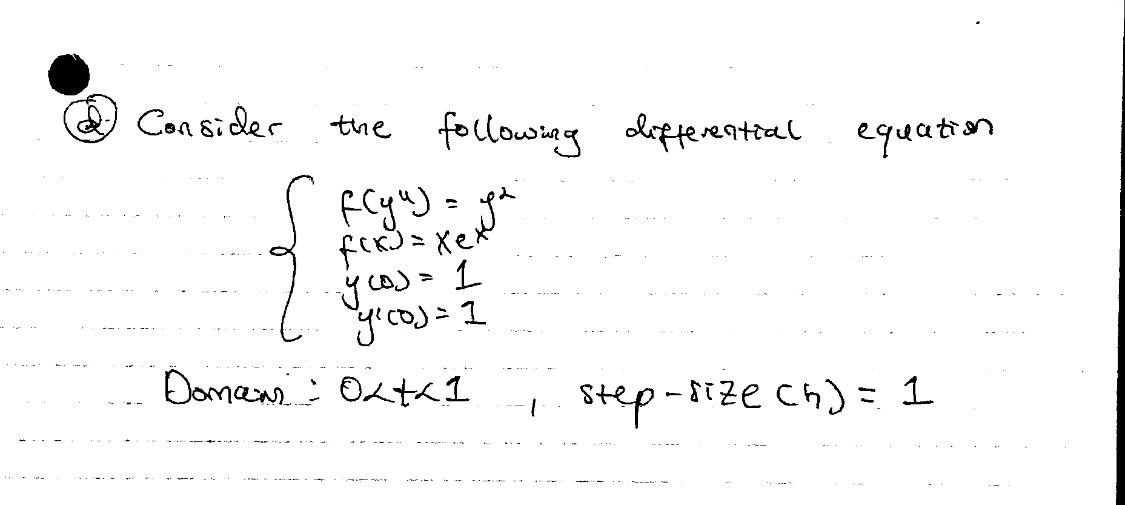 d. Consider the following differential equation
f(y") = y²
f(x) = xeˣ
y(0) = 1
y'(0) = 1
Domain : 0<t<1 , step-size (h) = 1